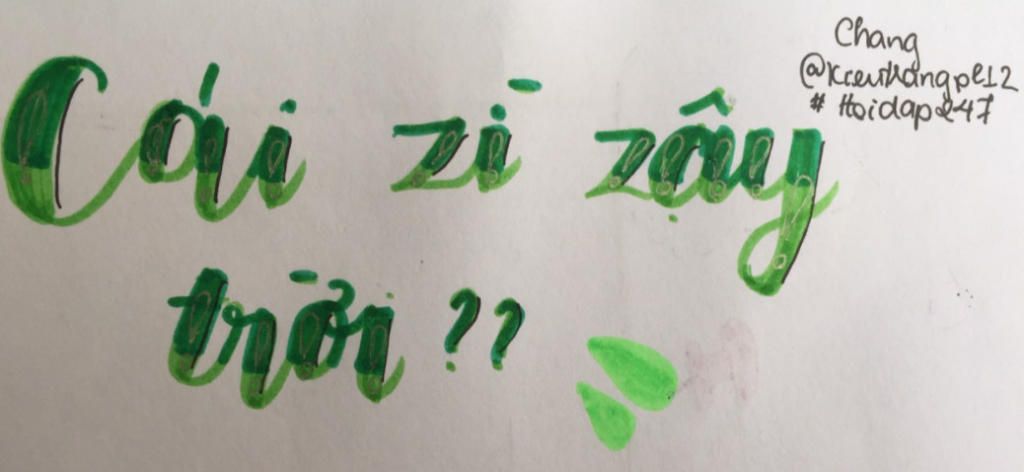 Cái zì zậy
trời ??
Chang
# Hoidap247